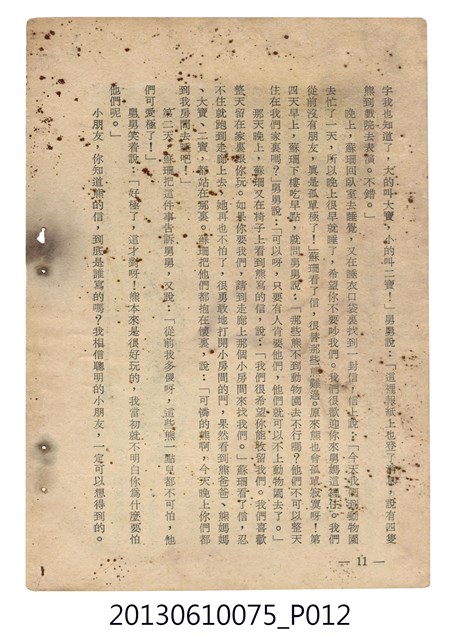 字我也知道了，大的叫大寶，小的叫二寶！」舅舅說：「這裡報紙上也登了，說有四隻
熊到戲院去表演。不錯。」
晚上，蘇珊回臥室去睡覺，又在睡衣口袋裏找到一封信，信上說：「今天我們到動物園
去忙了一天，所以晚上很早就睡了，希望你不要吵我們。我們很歡迎你來舅媽這裡住。我們
從前沒有朋友，眞是孤單極了！」蘇珊看了信，很替那些熊難過。原來熊也會孤單寂寞呀！第
四天早上，蘇珊下樓吃早點，就問舅舅說：「那些熊不到動物園去不行嗎？他們不可以整天
住在我們家裏嗎？」舅舅說：「可以呀，只要有人肯要他們，他們就可以不上動物園去了。」
那天晚上，蘇珊又在椅子上看到熊寫的信，說：「我們很希望你能收留我們。我們喜歡
整天留在家裏跟你玩。如果你要我們，請到走廊上那個小房間來找我們。」蘇珊看了信，忍
不住就跑到走廊上去。她再也不怕了，很勇敢地打開小房間的門，果然看到熊爸爸、熊媽媽
、大寶、二寶，都站在那裏。蘇珊把他們都抱在懷裏，說：「可憐的熊啊，今天晚上你們都
到我房間去睡吧！」
第二天，蘇珊把這件事告訴舅舅，又說：「從前我多傻呀，這些熊一點兒都不可怕，他
們可愛極了！」
舅舅笑着說：「好極了，這才對呀！熊本來是很好玩的，我當初就不明白你爲什麼要怕
他們呢。」
小朋友，你知道熊的信，到底是誰寫的嗎？我相信聰明的小朋友，一定可以想得到的。
— 11 —
20130610075_P012